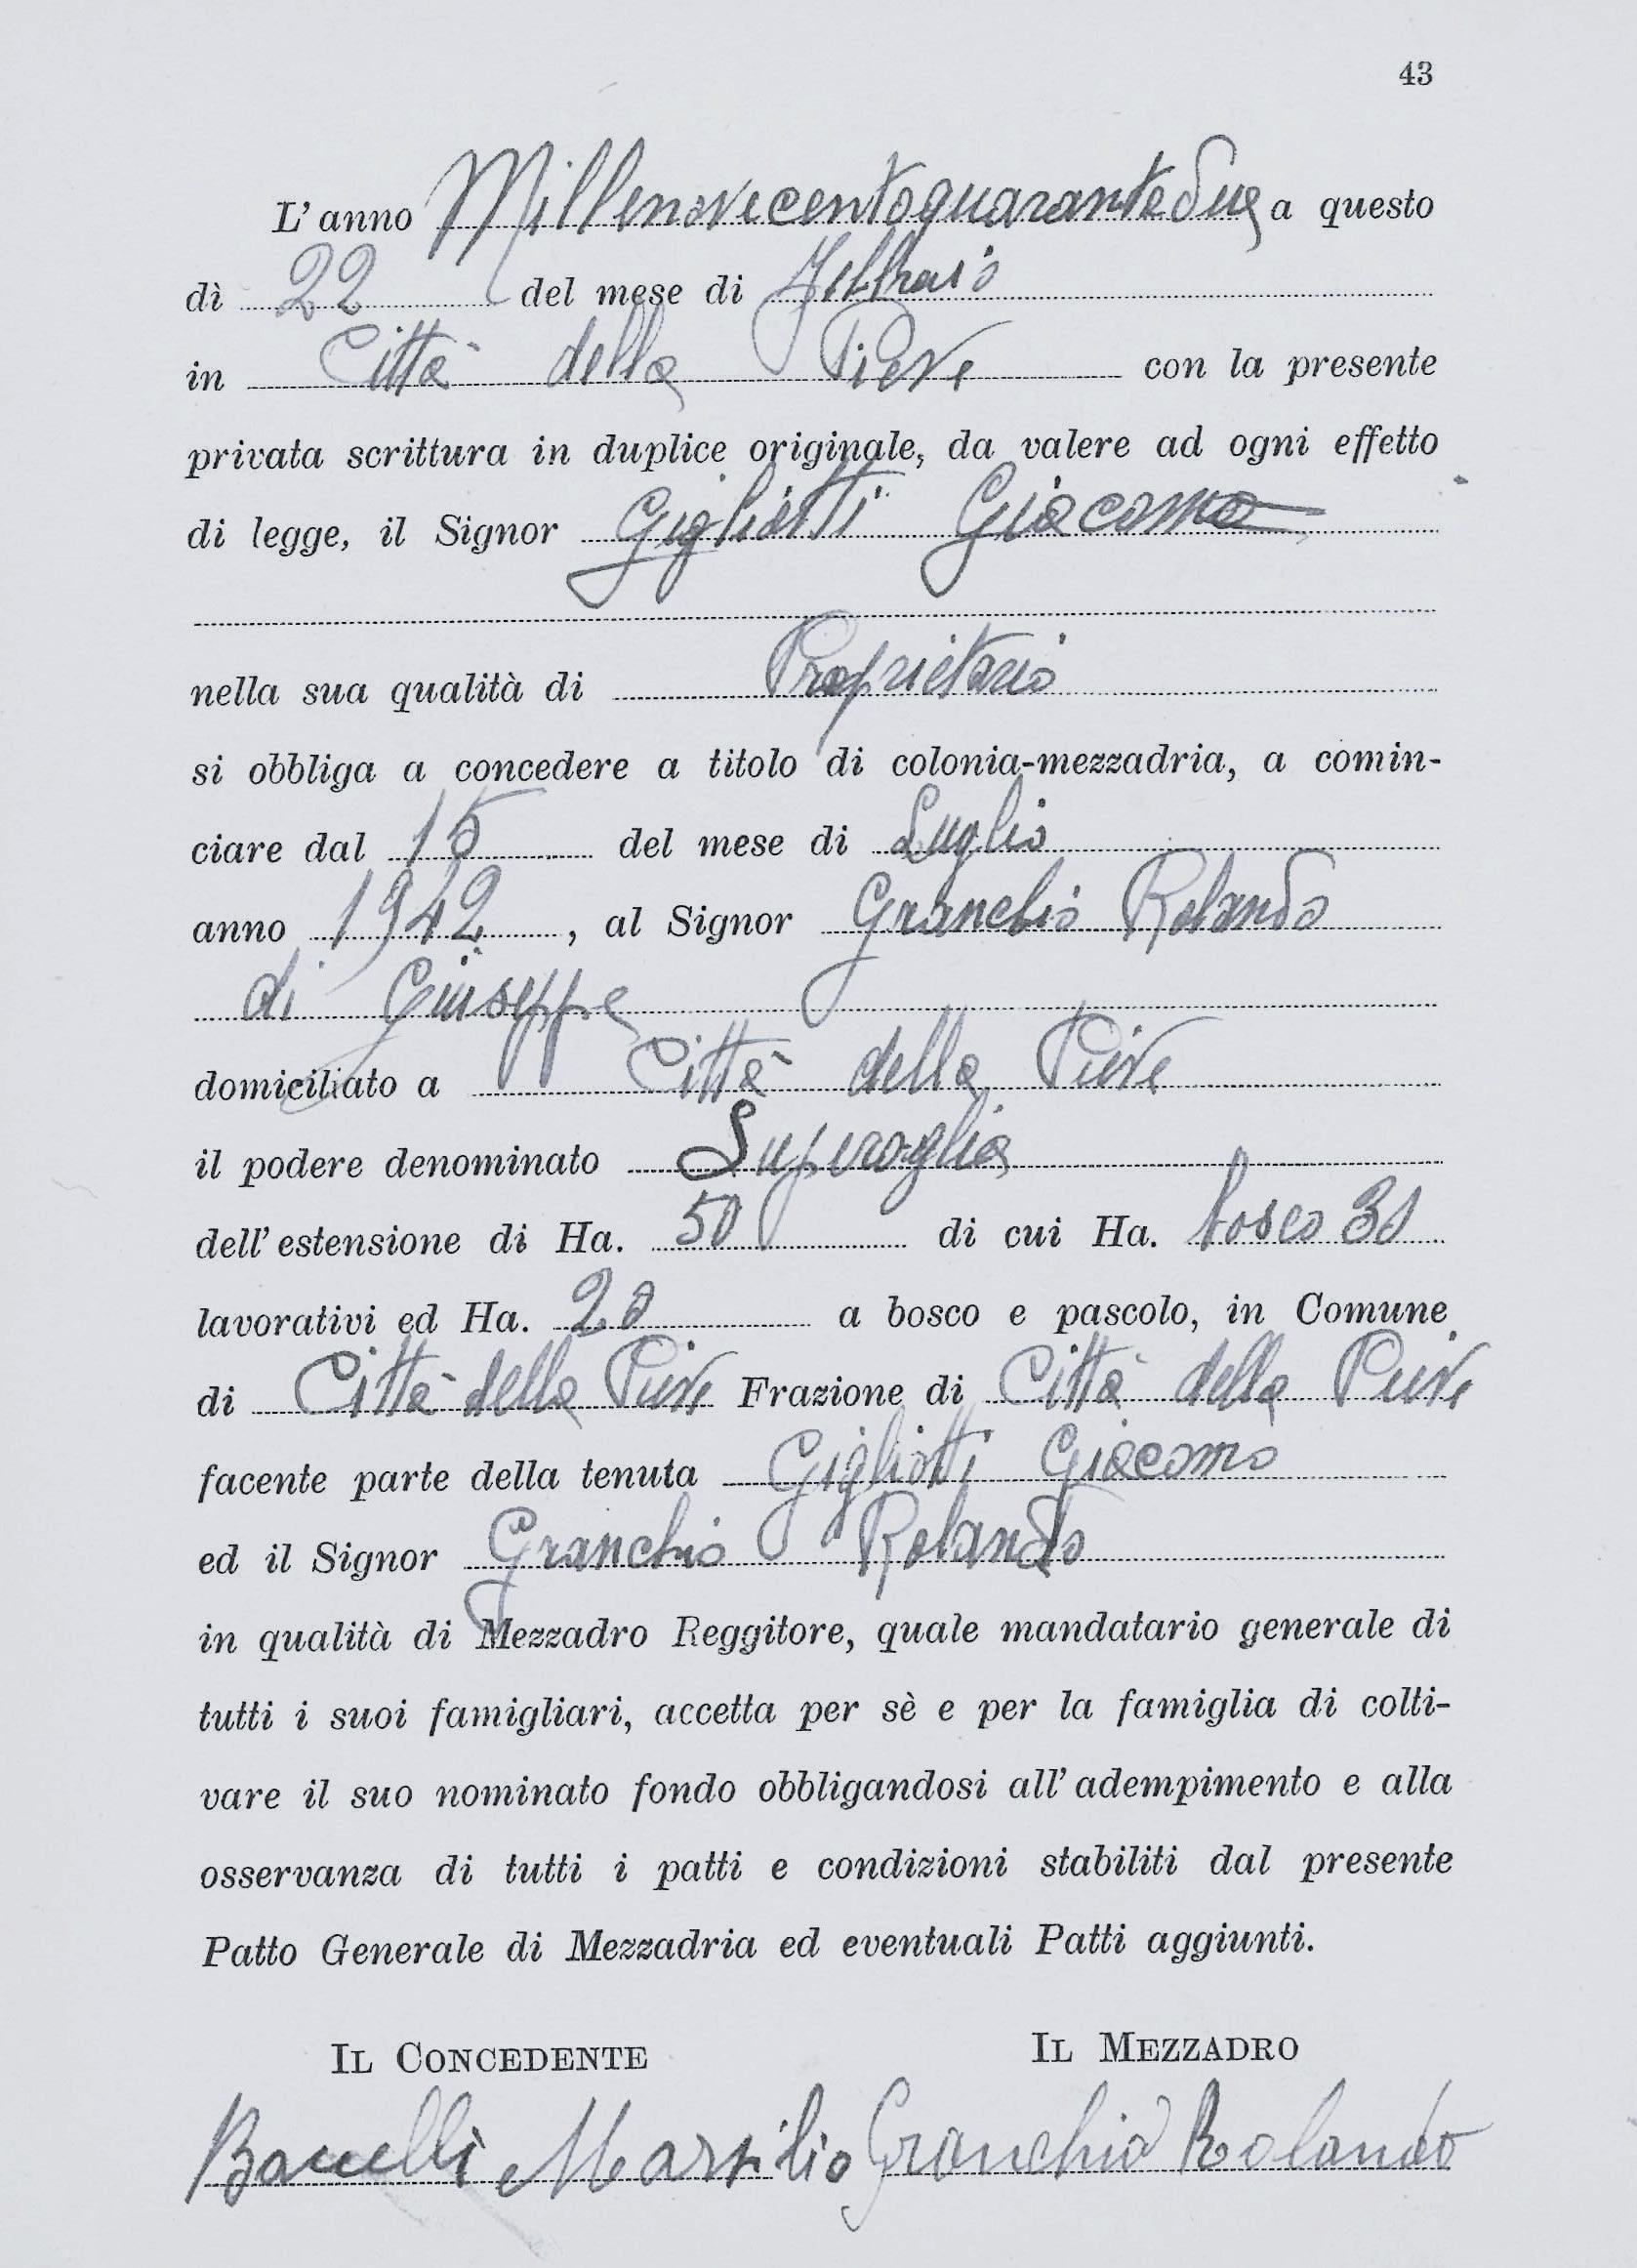 43
L'anno Millenovecentoquarantadue a questo
dì 22 del mese di Febbraio
in Città della Pieve con la presente
privata scrittura in duplice originale, da valere ad ogni effetto
di legge, il Signor Gigliotti Giacomo
nella sua qualità di Proprietario
si obbliga a concedere a titolo di colonia-mezzadria, a comin-
ciare dal 15 del mese di Luglio
anno 1942, al Signor Granchio Rolando
di Giuseppe
domiciliato a Città della Pieve
il podere denominato
dell'estensione di Ha. 50 di cui Ha. bosco
lavorativi ed Ha. 20 a bosco e pascolo, in Comune
di Città della Pieve Frazione di Città della Pieve
facente parte della tenuta Gigliotti Giacomo
ed il Signor Granchio Rolando
in qualità di Mezzadro Reggitore, quale mandatario generale di
tutti i suoi famigliari, accetta per sè e per la famiglia di colti-
vare il suo nominato fondo obbligandosi all'adempimento e alla
osservanza di tutti i patti e condizioni stabiliti dal presente
Patto Generale di Mezzadria ed eventuali Patti aggiunti.
IL CONCEDENTE IL MEZZADRO
Marsilio Granchio Rolando